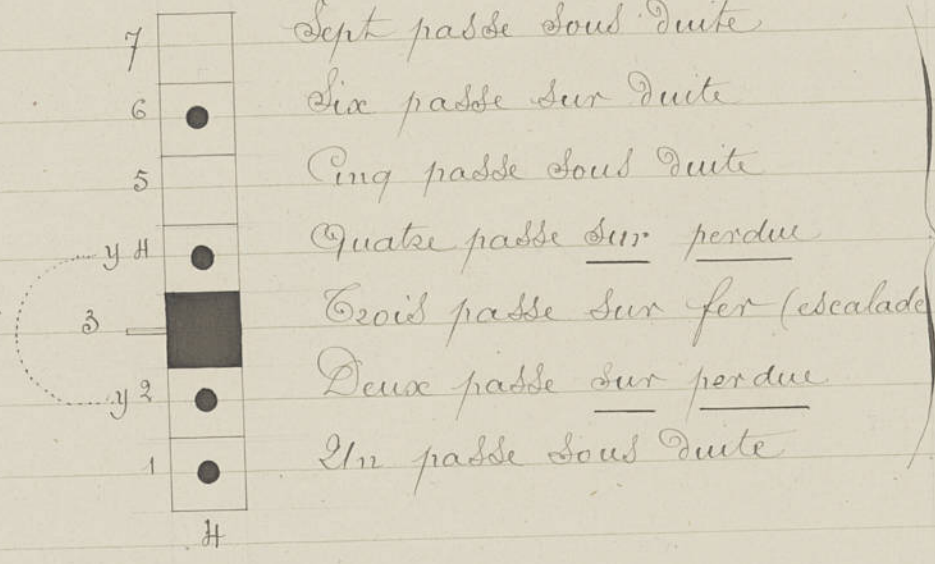 7 Sept passe sous duite
6 Six passe sur duite
5 Cinq passe sous duite
y 4 Quatre passe sur perdue
3 Trois passe sur fer (escalade
y 2 Deux passe sur perdue
1 Un passe sous duite
4